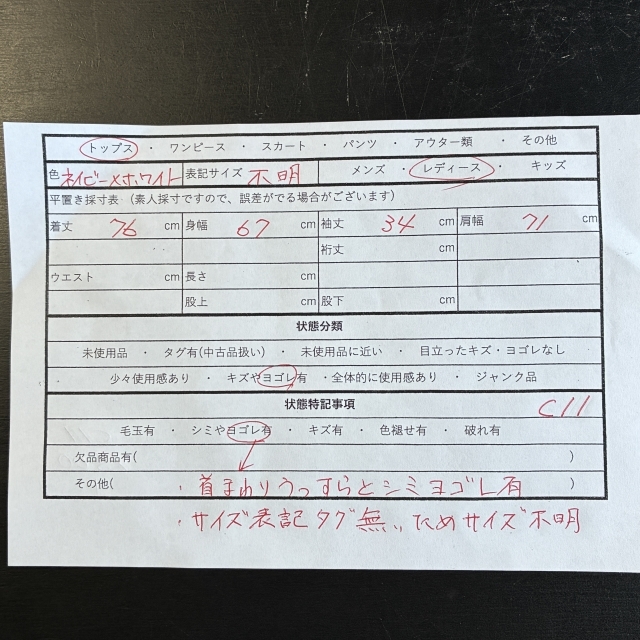 トップス ・ ワンピース ・ スカート ・ パンツ ・ アウター類 ・ その他
色 ネイビー×ホワイト 表記サイズ 不明 メンズ ・ レディース ・ キッズ
平置き採寸表（素人採寸ですので、誤差がでる場合がございます）
着丈 76 cm 身幅 67 cm 袖丈 34 cm 肩幅 71 cm
裄丈 cm
ウエスト cm 長さ cm
股上 cm 股下 cm
状態分類
未使用品 ・ タグ有(中古品扱い) ・ 未使用品に近い ・ 目立ったキズ・ヨゴレなし
少々使用感あり ・ キズやヨゴレ有 ・全体的に使用感あり ・ ジャンク品
状態特記事項 C11
毛玉有 ・ シミやヨゴレ有 ・ キズ有 ・ 色褪せ有 ・ 破れ有
欠品商品有( )
その他( ・首まわりうっすらとシミヨゴレ有 )
・サイズ表記タグ無いためサイズ不明